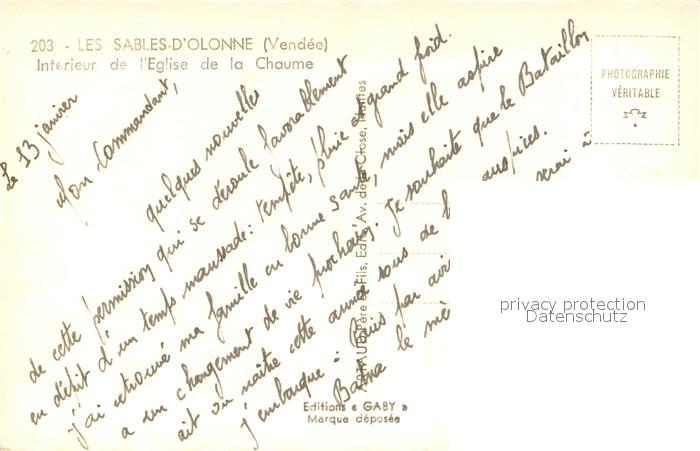 203 - LES SABLES-D'OLONNE (Vendée)
Intérieur de l'Eglise de la Chaume
PHOTOGRAPHIE
VÉRITABLE
Le 13 janvier
Mon Commandant,
quelques nouvelles
de cette permission qui se déroule favorablement
en dépit d'un temps maussade : tempête, pluie et grand froid.
J'ai retrouvé ma famille en bonne santé, mais elle aspire
a un changement de vie prochain. Je souhaite que le Bataillon
ait vu naître cette année sous de auspices.
J'embarque à Paris par avi serai à
le mê
ARTAUD Père & Fils, Edit., Av. de la Close, Nantes
Editions « GABY »
Marque déposée
privacy protection
Datenschutz